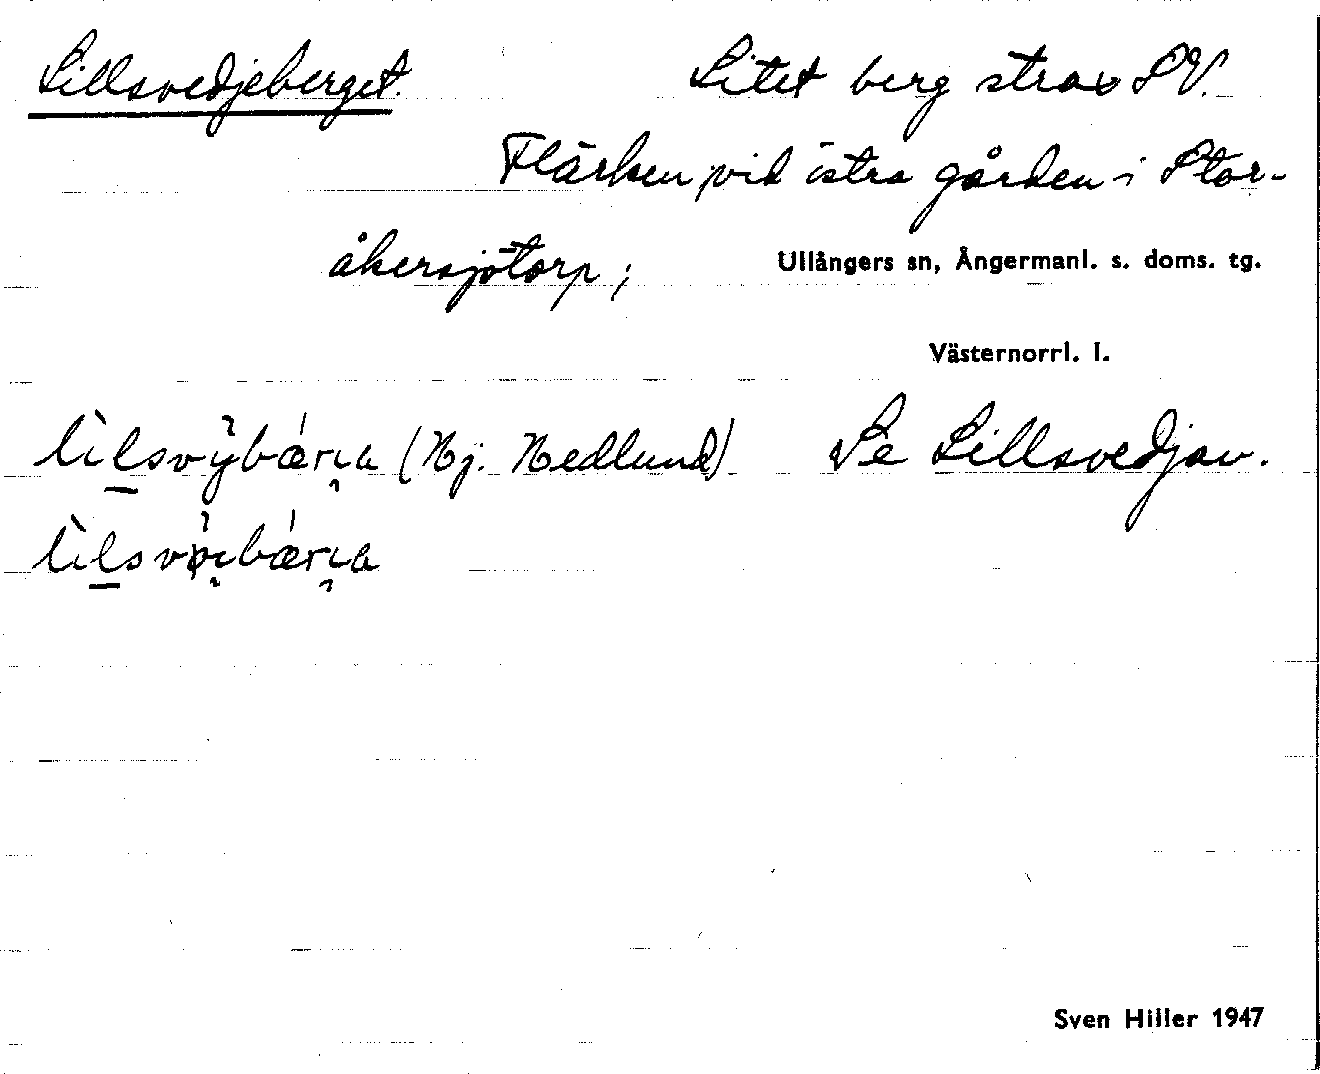 Lillsvedjeberget. Litet berg strax SV.
Flärken vid östra gården i Stor-
åkersjötorp; Ullångers sn, Ångermanl. s. doms. tg.
Västernorrl. l.
(Hj. Hedlund) Se Lillsvedjan.
Sven Hiller 1947